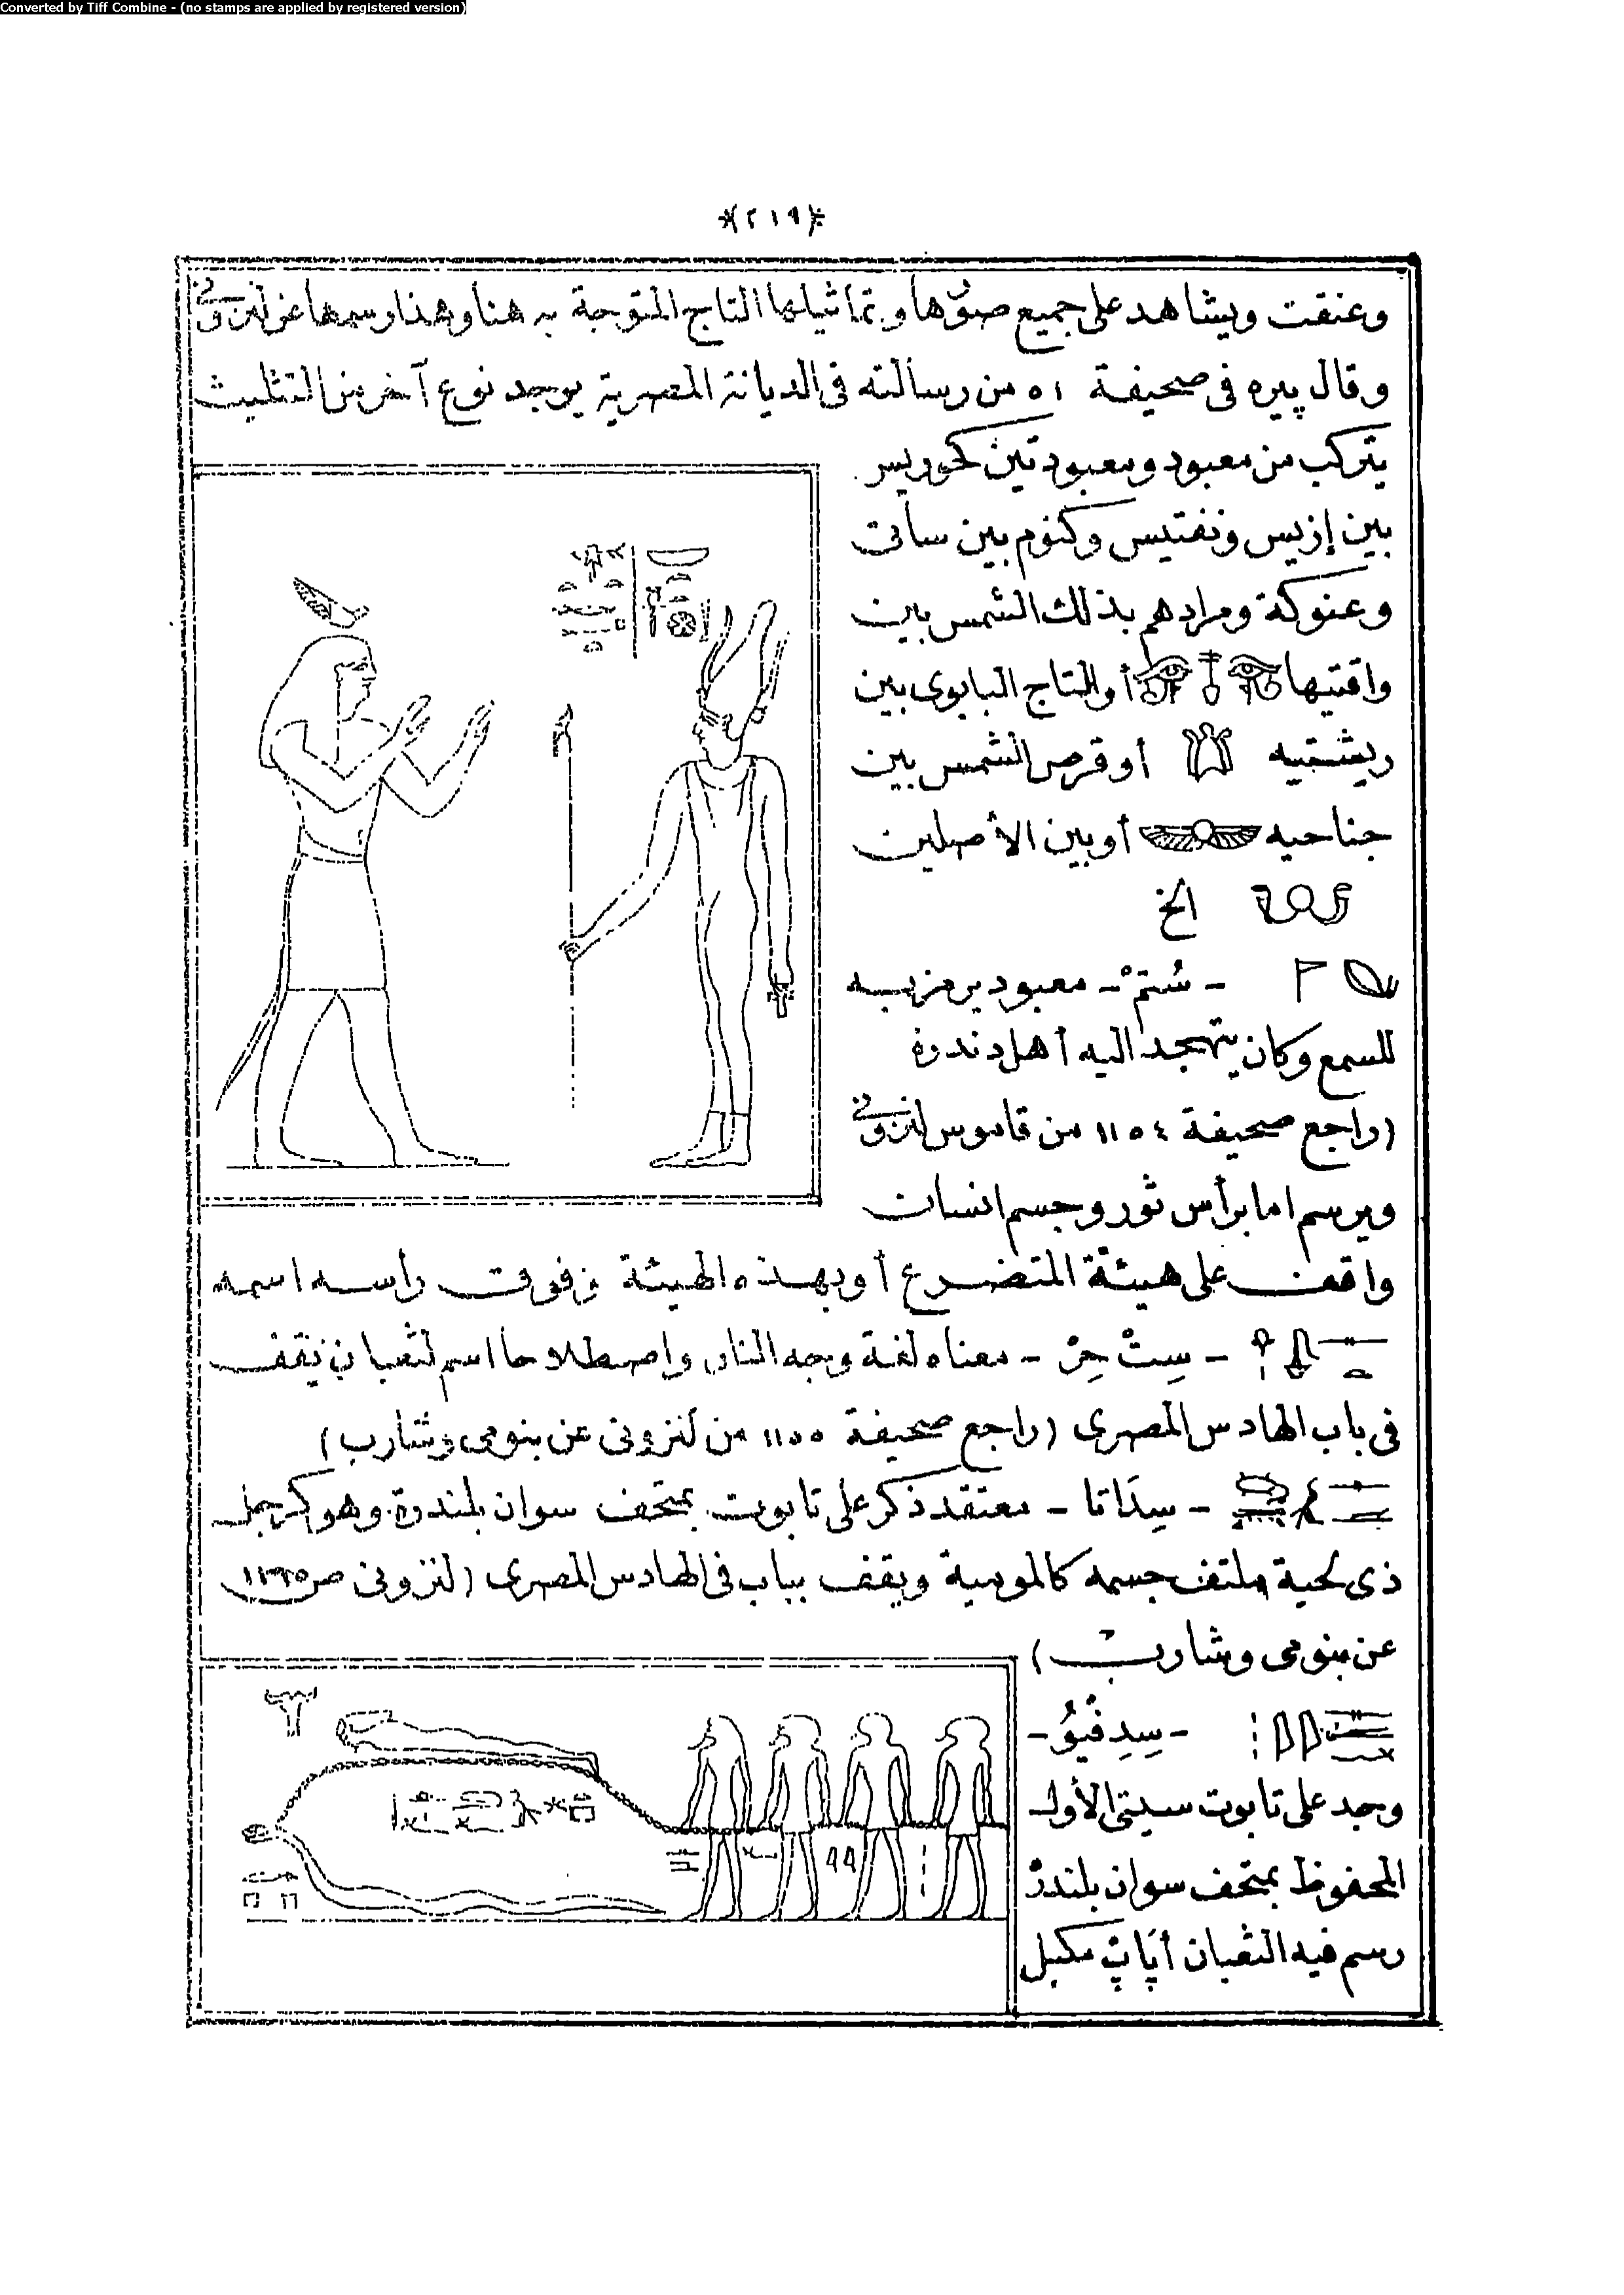 Converted by Tiff Combine - (no stamps are applied by registered version)
*(٢١٩)*
وعنقت ويشاهد على جميع صوّرها وتماثيلها التاج المتوجة به هنا وهذا رسمها عن لنزونى
وقال پيره فى صحيفة ٥١ من رسالته فى الديانة المصرية يوجد نوع آخر من التثليث
يتركب من معبود ومعبودتين كحوريس
بين إزيس ونفتيس وكنوم بين ساتى
وعنوكة ومرادهم بذلك الشمس بين
واقتيها أو التاج البابوى بين
ريشتيه أو قرص الشمس بين
جناحيه أو بين الأصلين
الخ
- سُتِمْ - معبود يرمز به
للسمع وكان يتهجد اليه أهل دندرة
(راجع صحيفة ١١٥٤ من قاموس لنزونى
ويرسم اما برأس ثور وجسم انسان
واقف على هيئة المتضرع أو بهذه الهيئة وفوق رأسه اسمه
- سِتْ حِرْ - معناه لغة وجه النار واصطلاحا اسم لثعبان يقف
فى باب الهادس المصرى (راجع صحيفة ١١٥٥ من لنزونى عن بنومى وشارب)
- سِدَاتا - معتقد ذكر على تابوت بمتحف سوان بلندرة وهو كرجل
ذى لحية ملتف جسمه كالمومية ويقف بباب فى الهادس المصرى (لنزونى ص
عن بنومى وشارب)
- سِدِفْيُو -
وجد على تابوت سيتى الأول
المحفوظ بمتحف سوان بلندرة
رسم فيه الثعبان أپاپ مكبل